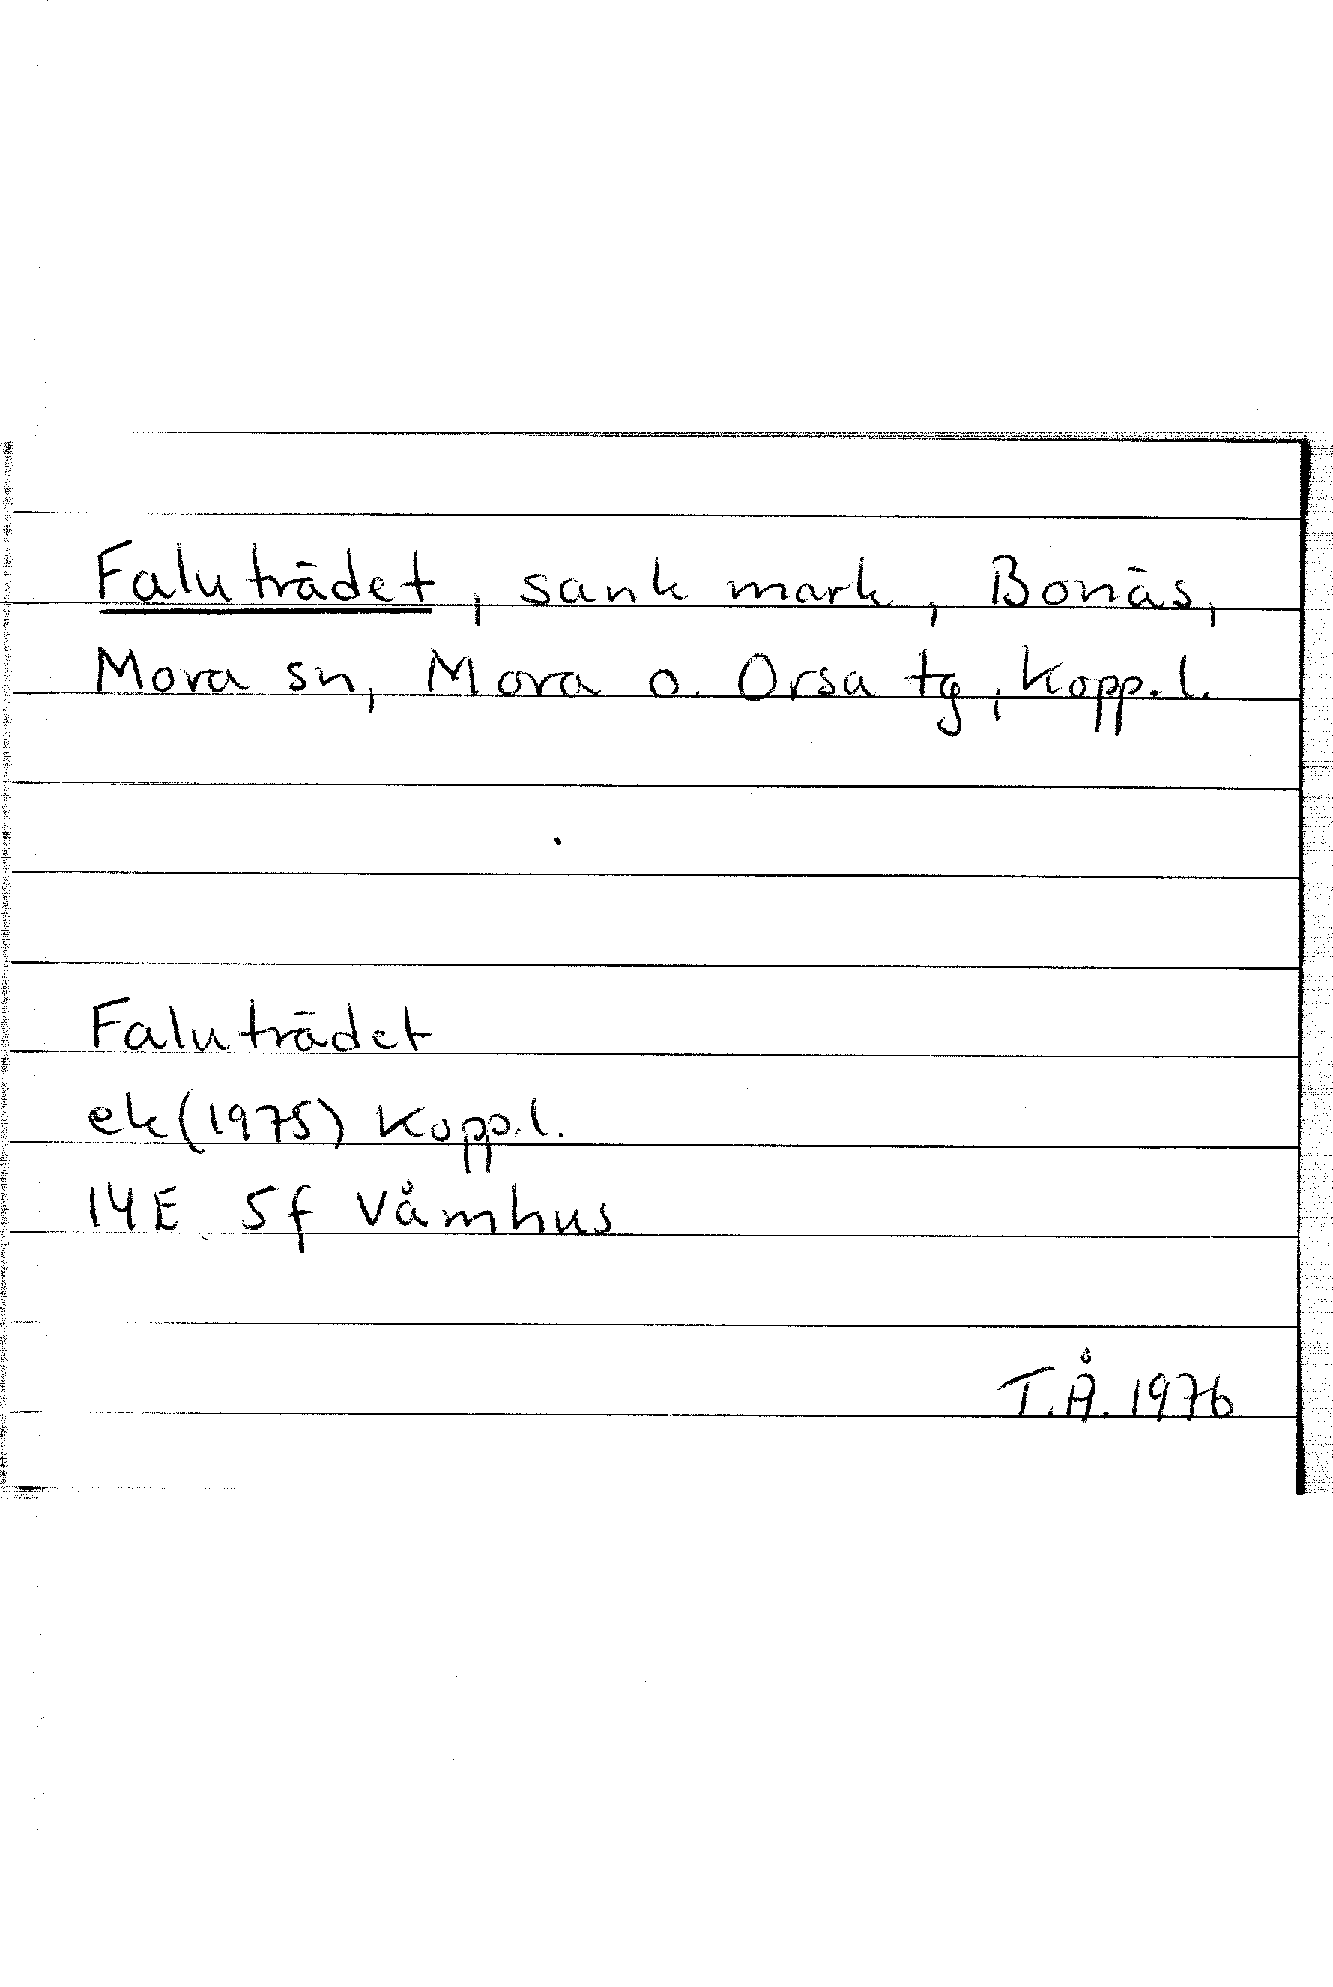 Faluträdet, sank mark, Bonäs,
Mora sn, Mora o. Orsa tg, Kopp.l.
Faluträdet
ek (1975) Kopp.l.
14E 5f Våmhus
T.Å. 1976